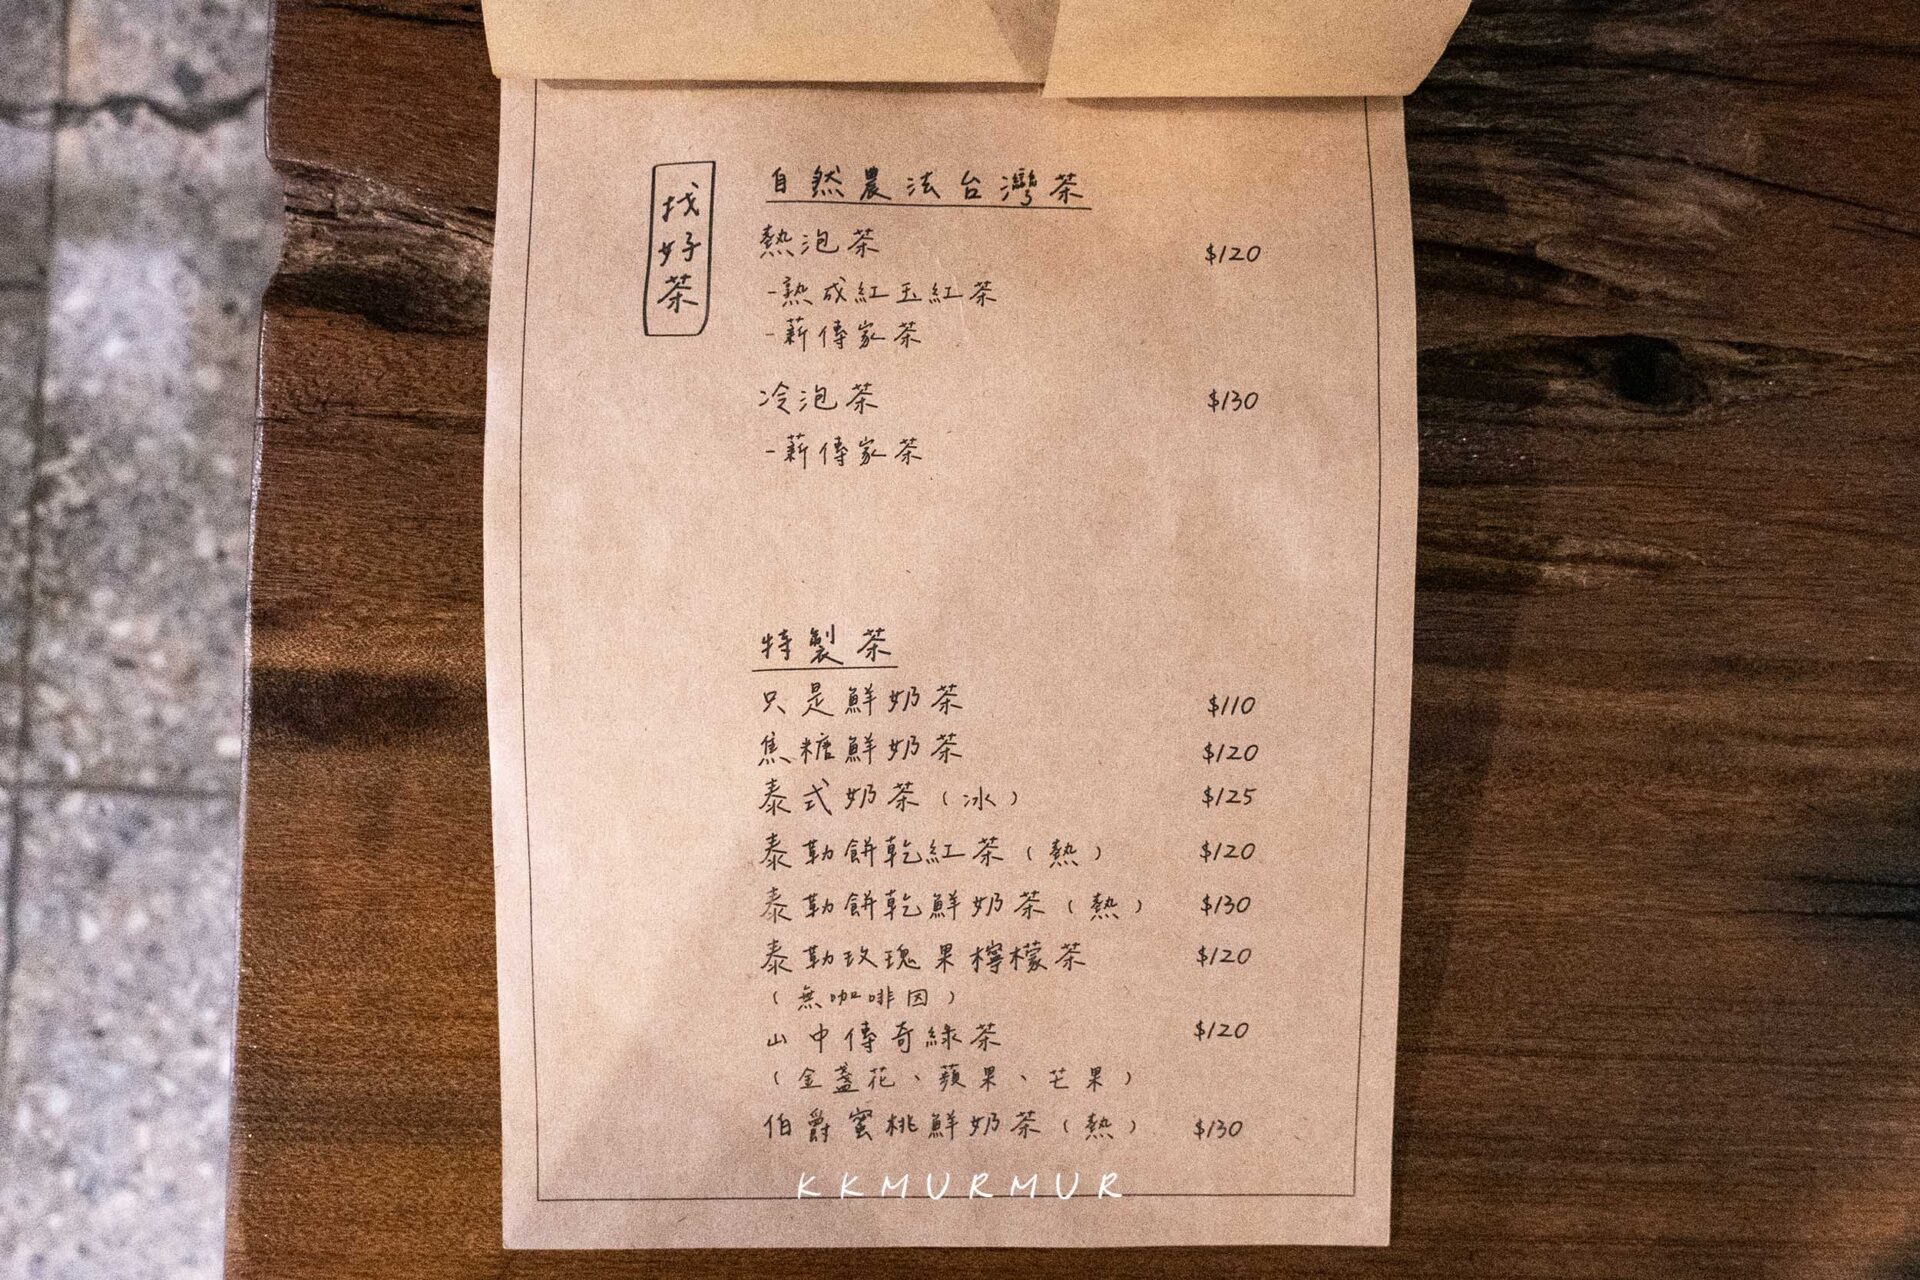 找好茶
自然農法台灣茶
熱泡茶 $120
-熟成紅玉紅茶
-薪傳家茶
冷泡茶 $130
-薪傳家茶
特製茶
只是鮮奶茶 $110
焦糖鮮奶茶 $120
泰式奶茶(冰) $125
泰勒餅乾紅茶(熱) $120
泰勒餅乾鮮奶茶(熱) $130
泰勒玫瑰果檸檬茶 $120
(無咖啡因)
山中傳奇綠茶 $120
(金盞花、蘋果、芒果)
伯爵蜜桃鮮奶茶(熱) $130
KKMURMUR